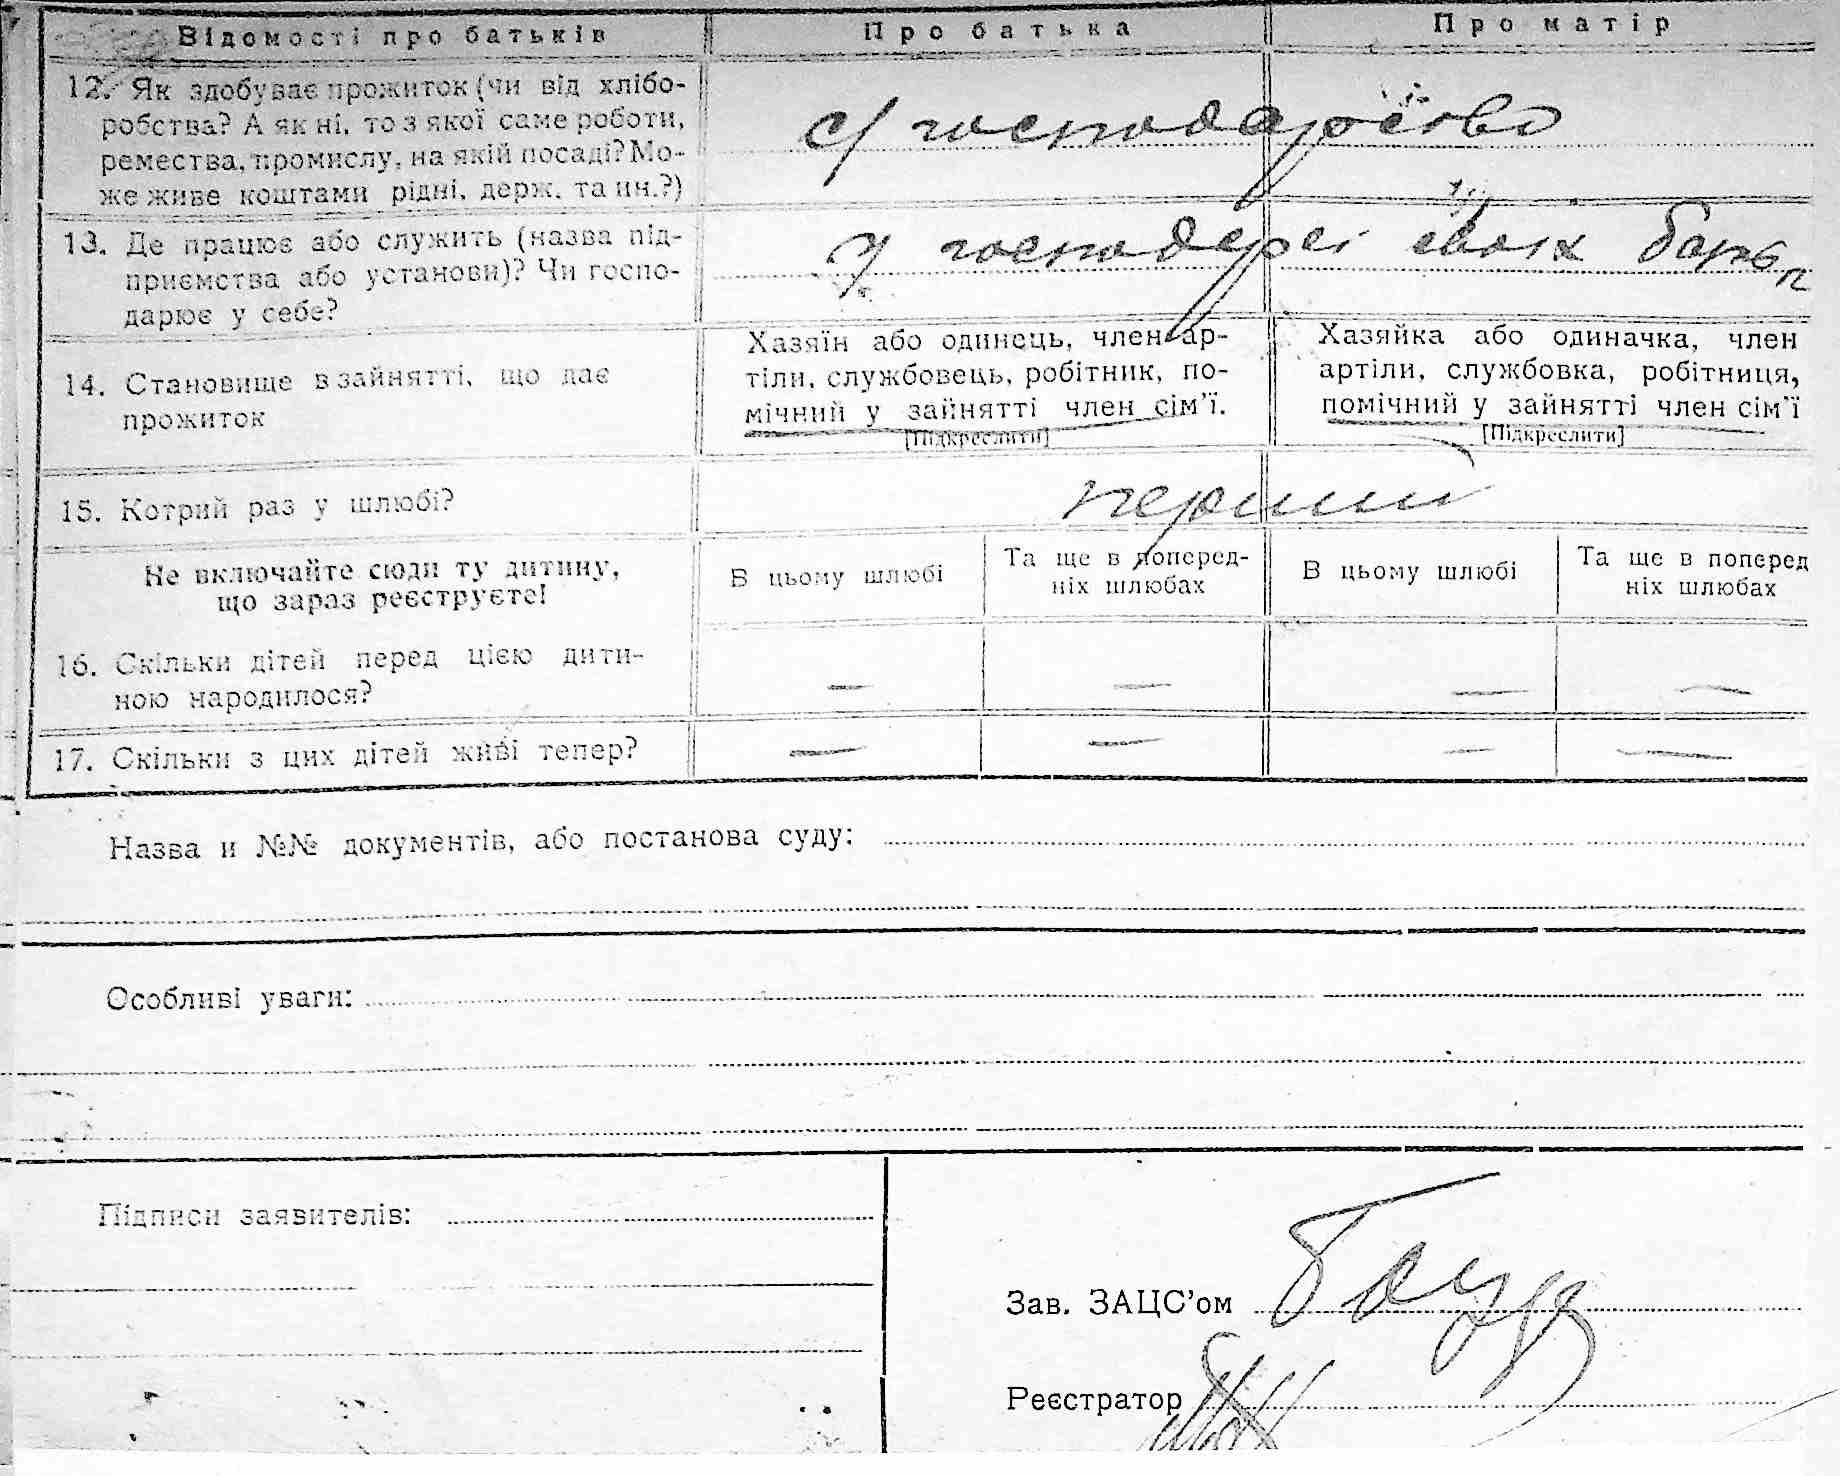 Відомості про батьків Про батька Про матір
12. Як здобуває прожиток (чи від хлібо-
робства? А як ні, то з якої саме роботи,
ремества, промислу, на якій посаді? Мо-
же живе коштами рідні, держ. та ин.?)
с/ господарство
13. Де працює або служить (назва під-
приємства або установи)? Чи госпо-
дарює у себе?
у господарсі своїх
14. Становище в зайнятті, що дає
прожиток
Хазяїн або одинець, член ар-
тіли, службовець, робітник, по-
мічний у зайнятті член сім’ї.
[Підкреслити]
Хазяйка або одиначка, член
артіли, службовка, робітниця,
помічний у зайнятті член сім’ї
[Підкреслити]
15. Котрий раз у шлюбі?
перший
Не включайте сюди ту дитину,
що зараз реєструєте!
В цьому шлюбі
Та ще в поперед-
ніх шлюбах
В цьому шлюбі
Та ще в поперед
ніх шлюбах
16. Скільки дітей перед цією дити-
ною народилося?
— — — —
17. Скільки з цих дітей живі тепер?
— — — —
Назва и №№ документів, або постанова суду:
Особливі уваги:
Підписи заявителів:
Зав. ЗАЦС’ом
Реєстратор